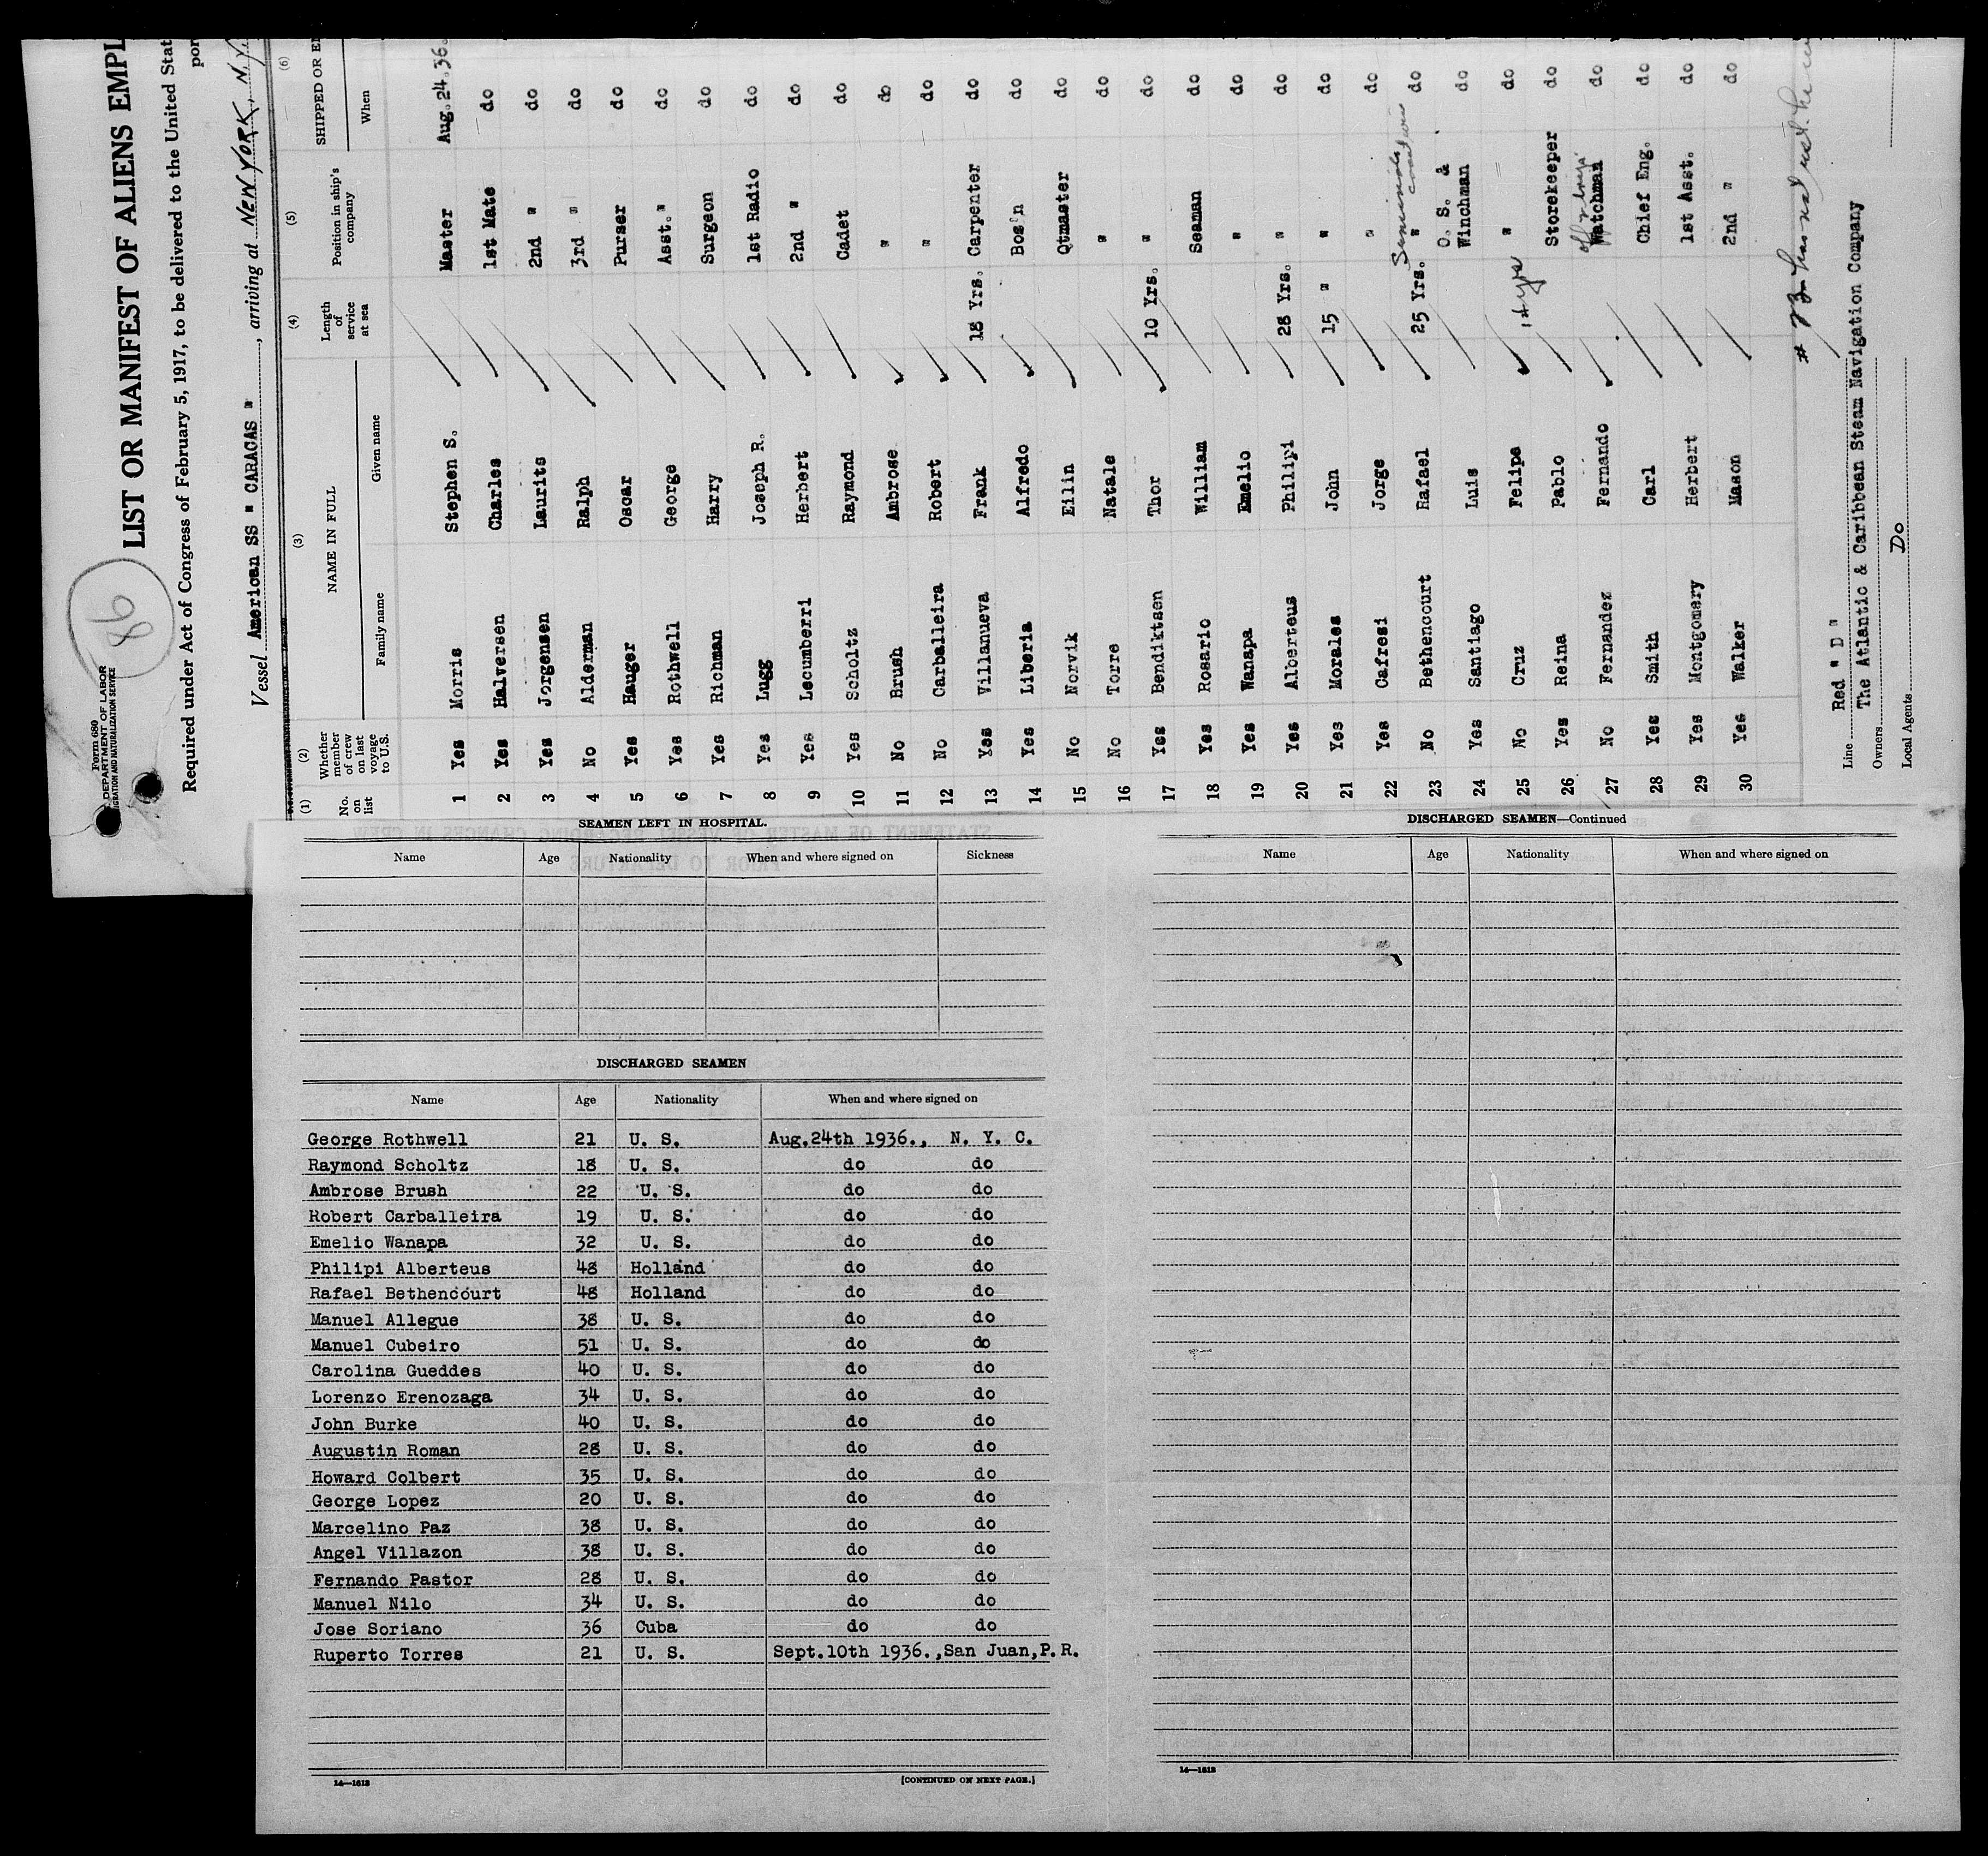 86
Form 680
DEPARTMENT OF LABOR
IMMIGRATION AND NATURALIZATION SERVICE
LIST OR MANIFEST OF ALIENS EMPL
Required under Act of Congress of February 5, 1917, to be delivered to the United Stat
por
Vessel American SS " CARACAS ", arriving at NEW YORK, N.Y.
(1) (2) (3) (4) (5) (6)
No. on list
Whether member of crew on last voyage to U.S.
NAME IN FULL
Family name Given name
Length of service at sea
Position in ship's company
SHIPPED OR EN
When
1 Yes Morris Stephen S. Master Aug. 24.36.
2 Yes Halversen Charles 1st Mate do
3 Yes Jorgensen Laurits 2nd " do
4 No Alderman Ralph 3rd " do
5 Yes Hauger Oscar Purser do
6 Yes Rothwell George Asst. " do
7 Yes Richman Harry Surgeon do
8 Yes Lugg Joseph R. 1st Radio do
9 Yes Lecumberri Herbert 2nd " do
10 Yes Scholtz Raymond Cadet do
11 No Brush Ambrose " do
12 No Carballeira Robert " do
13 Yes Villanueva Frank 18 Yrs. Carpenter do
14 Yes Liberia Alfredo Bos'n do
15 No Norvik Eilin Qtmaster do
16 No Torre Natale " do
17 Yes Bendiktsen Thor 10 Yrs. " do
18 Yes Rosario William Seaman do
19 Yes Wanapa Emelio " do
20 Yes Alberteus Philipi 28 Yrs. " do
21 Yes Morales John 15 " " do
22 Yes Cafresi Jorge " do
23 No Bethencourt Rafael 25 Yrs. " do
24 Yes Santiago Luis O. S. & Winchman do
25 No Cruz Felipe 14 yrs " do
26 Yes Reina Pablo Storekeeper do
27 No Fernandez Fernando Watchman do
28 Yes Smith Carl Chief Eng. do
29 Yes Montgomery Herbert 1st Asst. do
30 Yes Walker Mason 2nd " do
Line Red " D "
Owners The Atlantic & Caribbean Steam Navigation Company
Local Agents Do
SEAMEN LEFT IN HOSPITAL.
Name Age Nationality When and where signed on Sickness
DISCHARGED SEAMEN
Name Age Nationality When and where signed on
George Rothwell 21 U. S. Aug.24th 1936., N. Y. C.
Raymond Scholtz 18 U. S. do do
Ambrose Brush 22 U. S. do do
Robert Carballeira 19 U. S. do do
Emelio Wanapa 32 U. S. do do
Philipi Alberteus 48 Holland do do
Rafael Bethencourt 48 Holland do do
Manuel Allegue 38 U. S. do do
Manuel Cubeiro 51 U. S. do do
Carolina Gueddes 40 U. S. do do
Lorenzo Erenozaga 34 U. S. do do
John Burke 40 U. S. do do
Augustin Roman 28 U. S. do do
Howard Colbert 35 U. S. do do
George Lopez 20 U. S. do do
Marcelino Paz 38 U. S. do do
Angel Villazon 38 U. S. do do
Fernando Pastor 28 U. S. do do
Manuel Nilo 34 U. S. do do
Jose Soriano 36 Cuba do do
Ruperto Torres 21 U. S. Sept.10th 1936.,San Juan,P.R.
14—1613
[CONTINUED ON NEXT PAGE.]
DISCHARGED SEAMEN—Continued
Name Age Nationality When and where signed on
14—1613